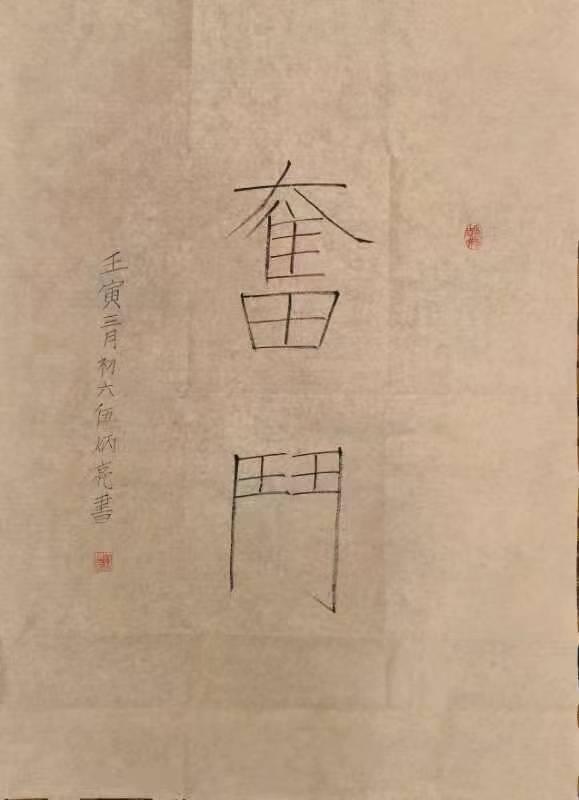 奮鬥
壬寅三月初六伍炳亮書